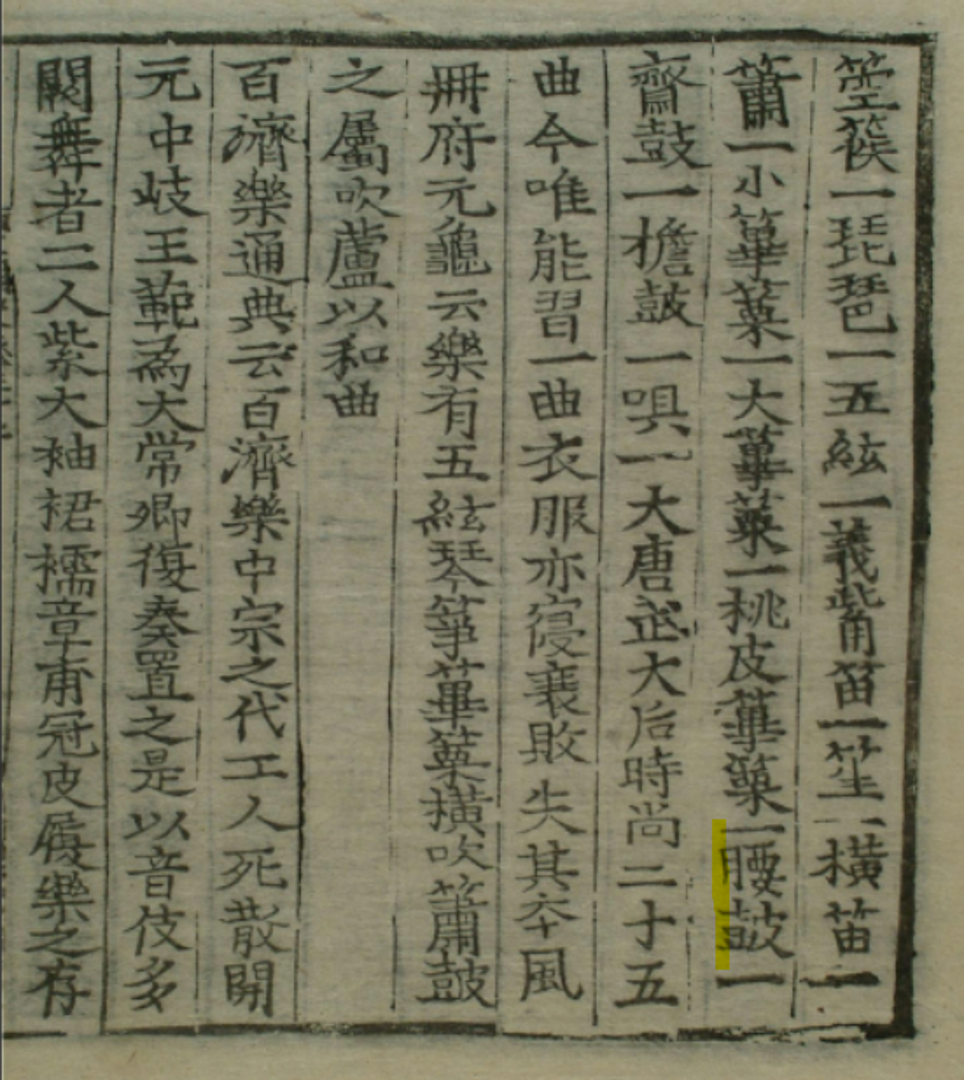 箜篌一琵琶一五絃一義觜笛一笙一橫笛一
簫一小篳篥一大篳篥一桃皮篳篥一腰鼓一
齋鼓一檐鼓一唄一大唐武大后時尚二十五
曲今唯能習一曲衣服亦寑衰敗失其夲風
冊府元龜云樂有五絃琴箏篳篥橫吹簫鼓
之屬吹蘆以和曲
百濟樂通典云百濟樂中宗之代工人死散開
元中岐王範爲大常卿復奏置之是以音伎多
闕舞者二人紫大袖裙襦章甫冠皮履樂之存